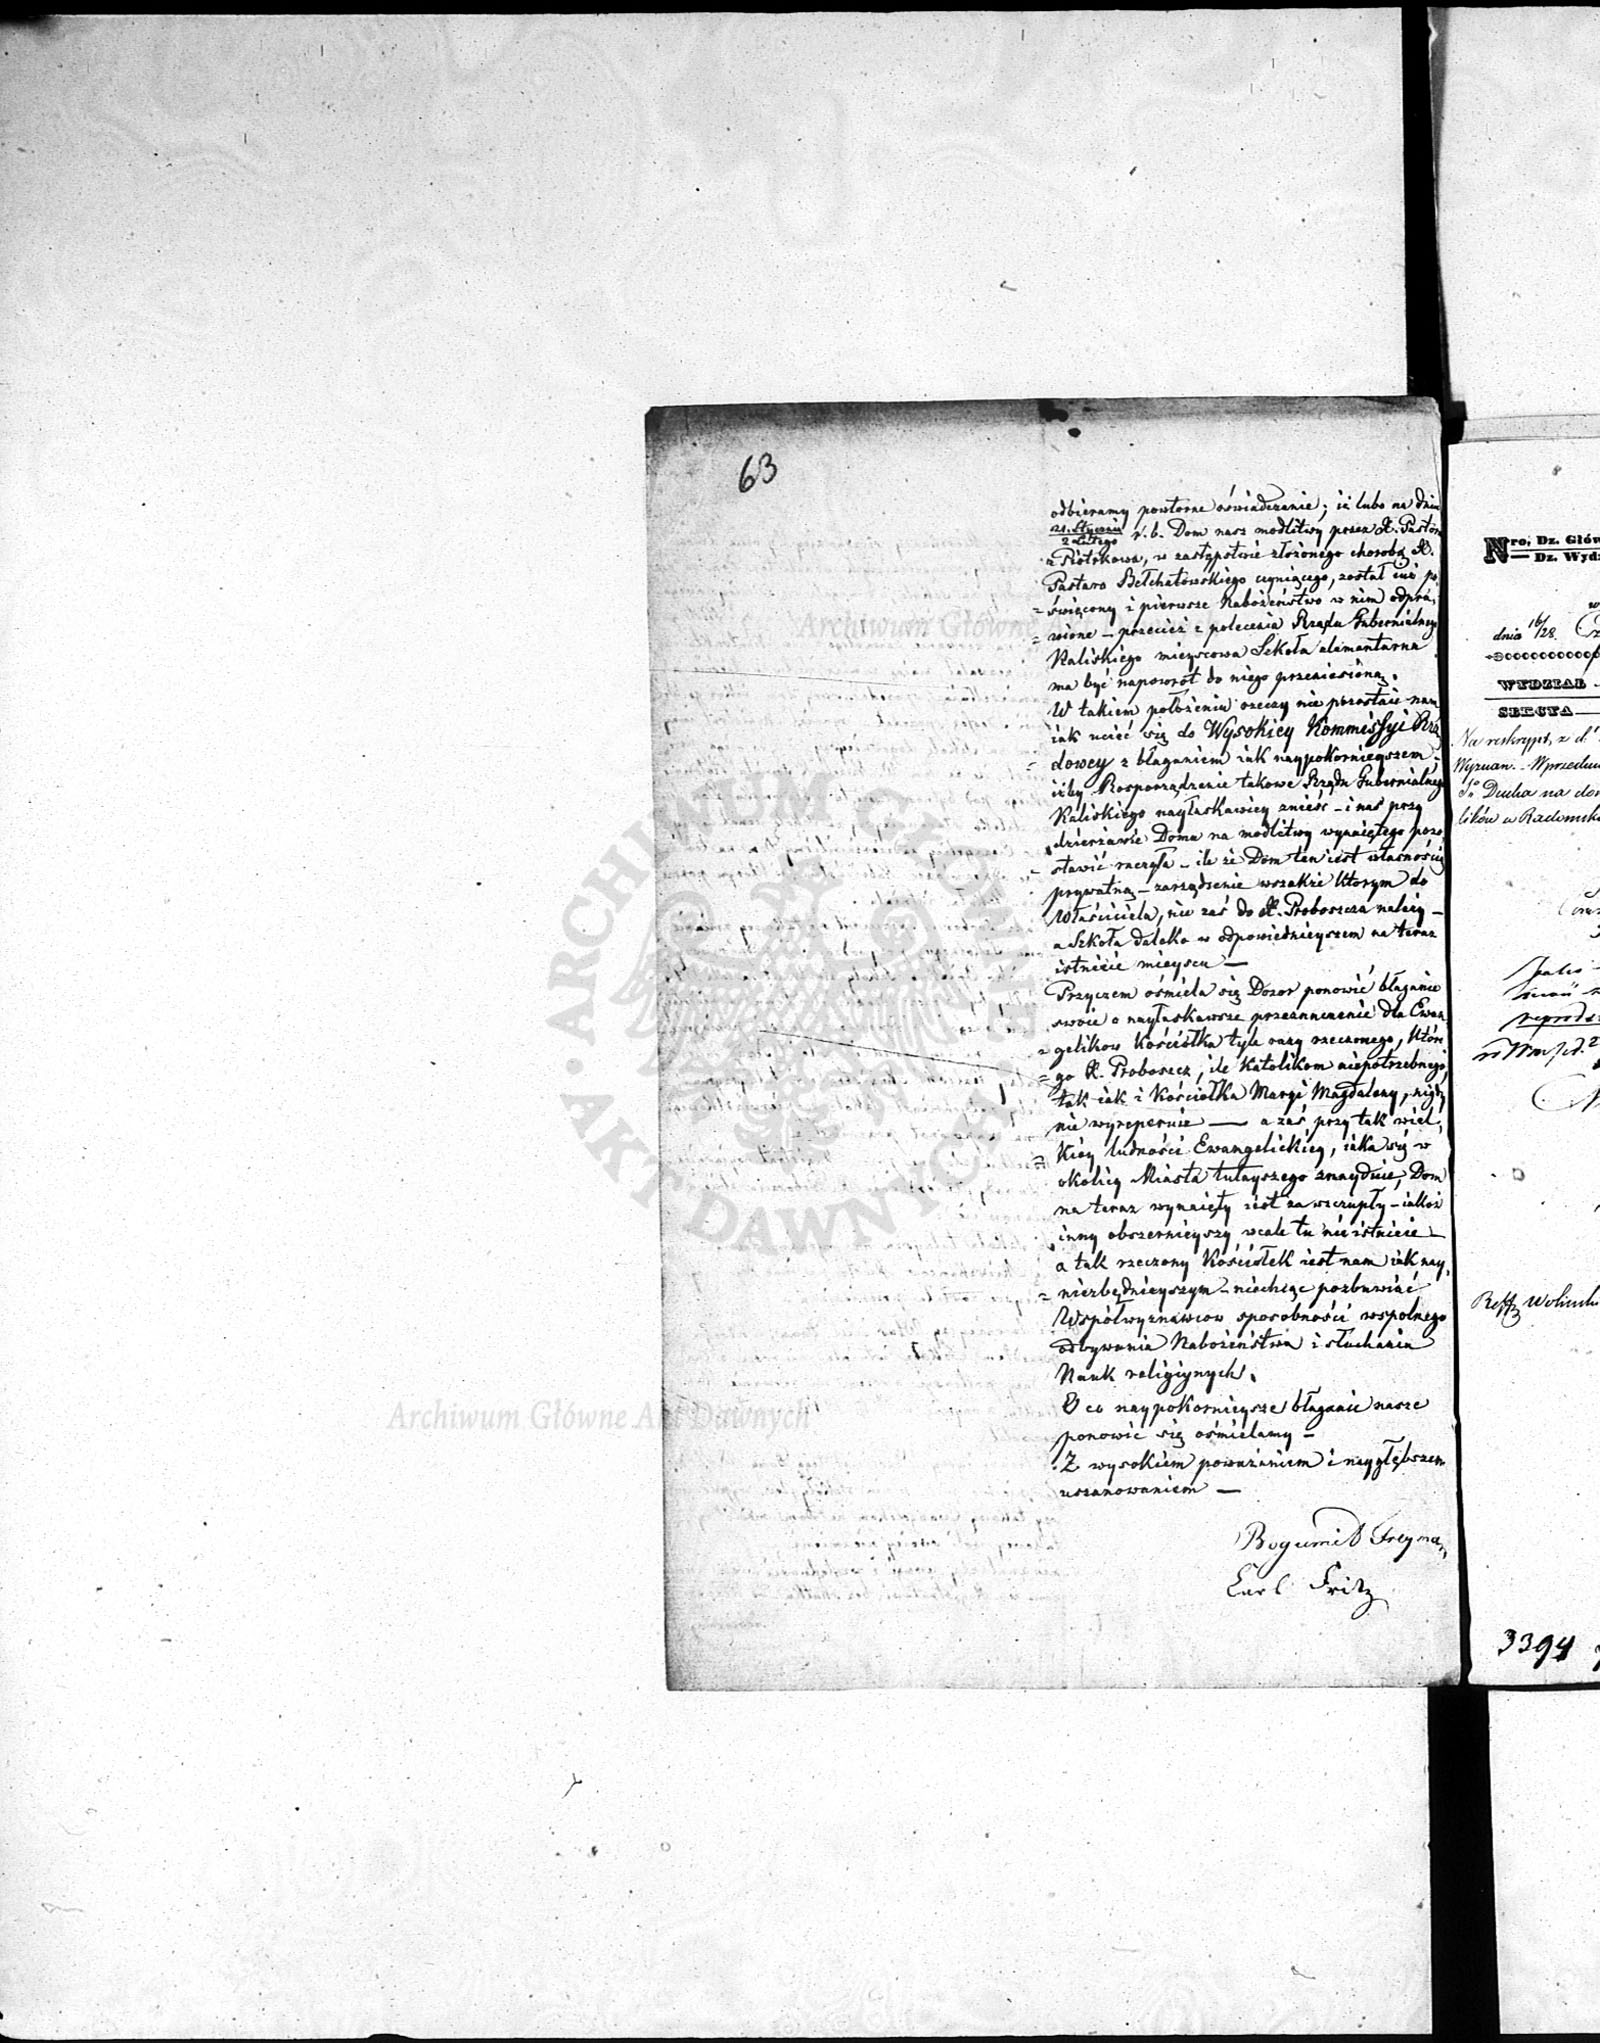 63
odbieramy powtorne oświadczenie; iż lubo na dniu
21. Stycznia
2 Lutego
r. b. Dom nasz modlitwy przez X. Pastora
z Piotrkowa, w zastępstwie złożonego chorobą X.
Pastora Bełchatowskiego czyniącego, został iuż po
= święcony i pierwsze Nabożeństwo w nim odpra,
= wione – przecież z polecenia Rządu Gubernialnego
Kaliskiego mieyscowa Szkoła elementarna
ma być napowrót do niego przeniesioną.
W takiem położeniu rzeczy nie pozostaie nam
iak uciec się do Wysokiey Kommissyi Rzą
= dowey z błaganiem iak naypokornieyszem;
iżby Rosporządzenie takowe Rządu Gubernialnego
Kaliskiego nayłaskawiey znieść – i nas przy
dzierżawie Domu na modlitwy wynaiętego pozo
= stawić raczyła – ile że Dom ten iest własnością
prywatną – zarządzenie wszakże którym do
Właściciela, nie zaś do X. Proboszcza należy –
a Szkoła daleko w odpowiednieyszem na teraz
istnieie mieyscu —
Przyczem ośmiela się Dozor ponowić błaganie
swoie o nayłaskawsze przeznaczenie dla Ewan
= gelikow Kościółka tyle razy rzeczonego, które
= go X. Proboszcz, ile Katolikom niepotrzebnego,
tak iak i Kościołka Maryi Magdaleny, nigdy
nie wyreperuie — a zaś przy tak wiel,
= kiey ludności Ewangelickiey, iaka się w
okolicy Miasta tuteyszego znayduie, Dom
na teraz wynaięty iest za szczupły – iakoż
inny obszernieyszy wcale tu nie istnieie –
a tak rzeczony Kościołek iest nam iak nay,
= niezbędnieyszym – niechcąc pozbawiać
Współwyznawcow sposobności wspolnego
odbywania Nabożeństwa i słuchania
Nauk religiynych.
O co naypokornieysze błaganie nasze
ponowić się ośmielamy –
Z wysokiem poważaniem i nayłębszem
uszanowaniem —
Bogumił Freyman
Carl Fritz
Nro. Dz. Głów
Dz. Wydz
dnia 16/28.
WYDZIAŁ
SEKCYA
Na reskrypt z d.
Wyznan.
Sgo Ducha na dom
lików w Radomsku
3394
Archiwum Główne Akt Dawnych
ARCHIWUM GŁÓWNE AKT DAWNYCH
Archiwum Główne Akt Dawnych